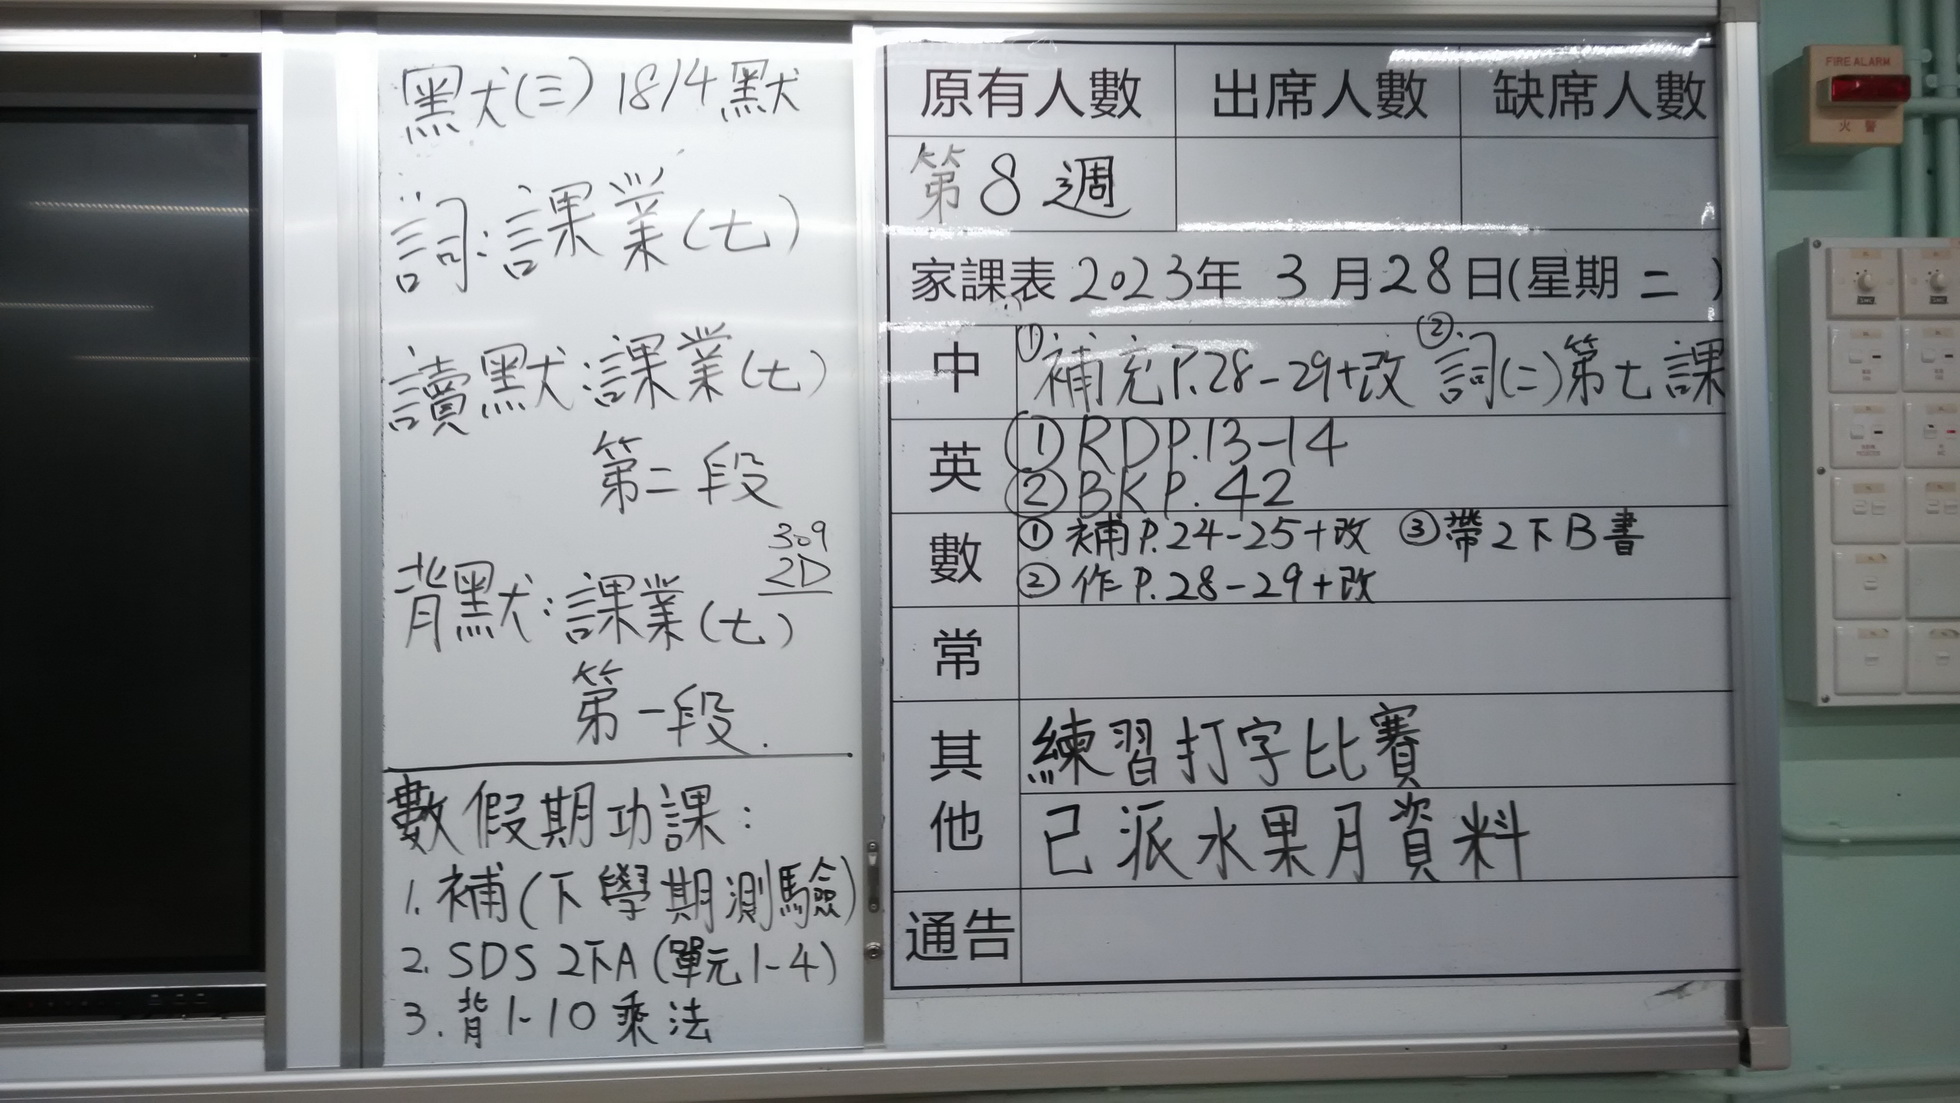 默(三) 18/4默
詞:課業(七)
讀默:課業(七)
第二段
309
2D
背默:課業(七)
第一段.
數假期功課:
1. 補(下學期測驗)
2. SDS 2下A (單元1-4)
3. 背1-10乘法
原有人數 出席人數 缺席人數
第8週
家課表 2023年 3月28日(星期二)
中 ①補充P.28-29+改 ②詞(二)第七課
英 ①RD P.13-14
②BK P.42
數 ①補P.24-25+改 ③帶2下B書
②作P.28-29+改
常
其他 練習打字比賽
已派水果月資料
通告
FIRE ALARM
火警